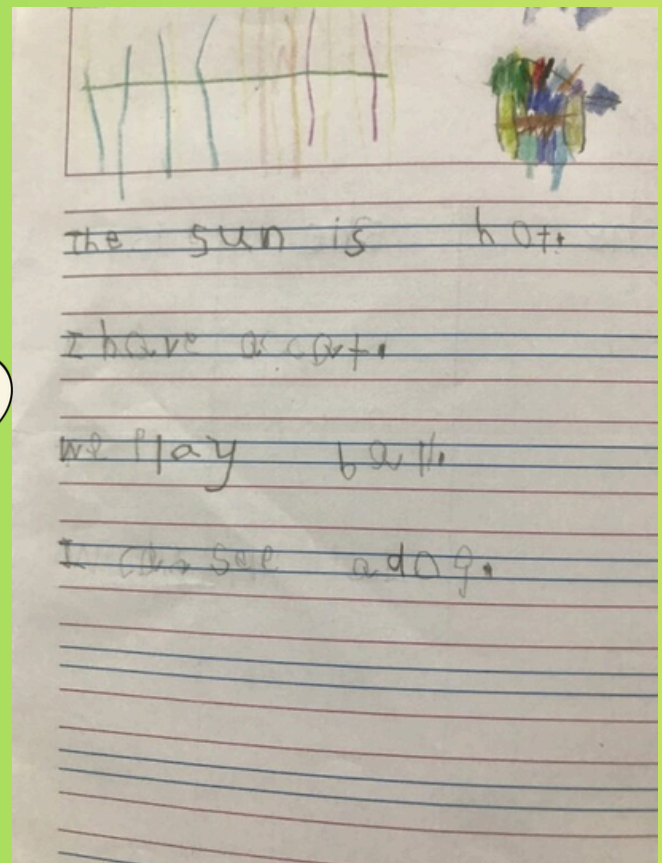 The sun is hot.
I have a cat.
we Play ball.
I can see a dog.